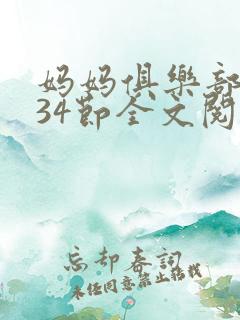 妈妈俱樂部
34節全文閱
忘却春詞
未经同意禁止搭载